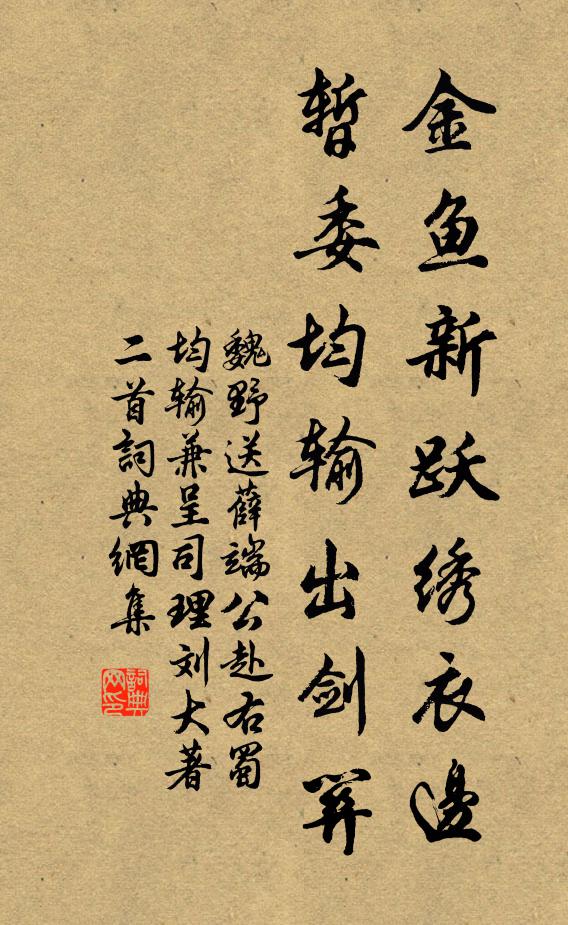 金鱼新跃绣衣邊
暫委均输出剑關
魏野送薛端公赴右蜀
均输兼呈司理刘大著
二首詞典網集
詞典网印